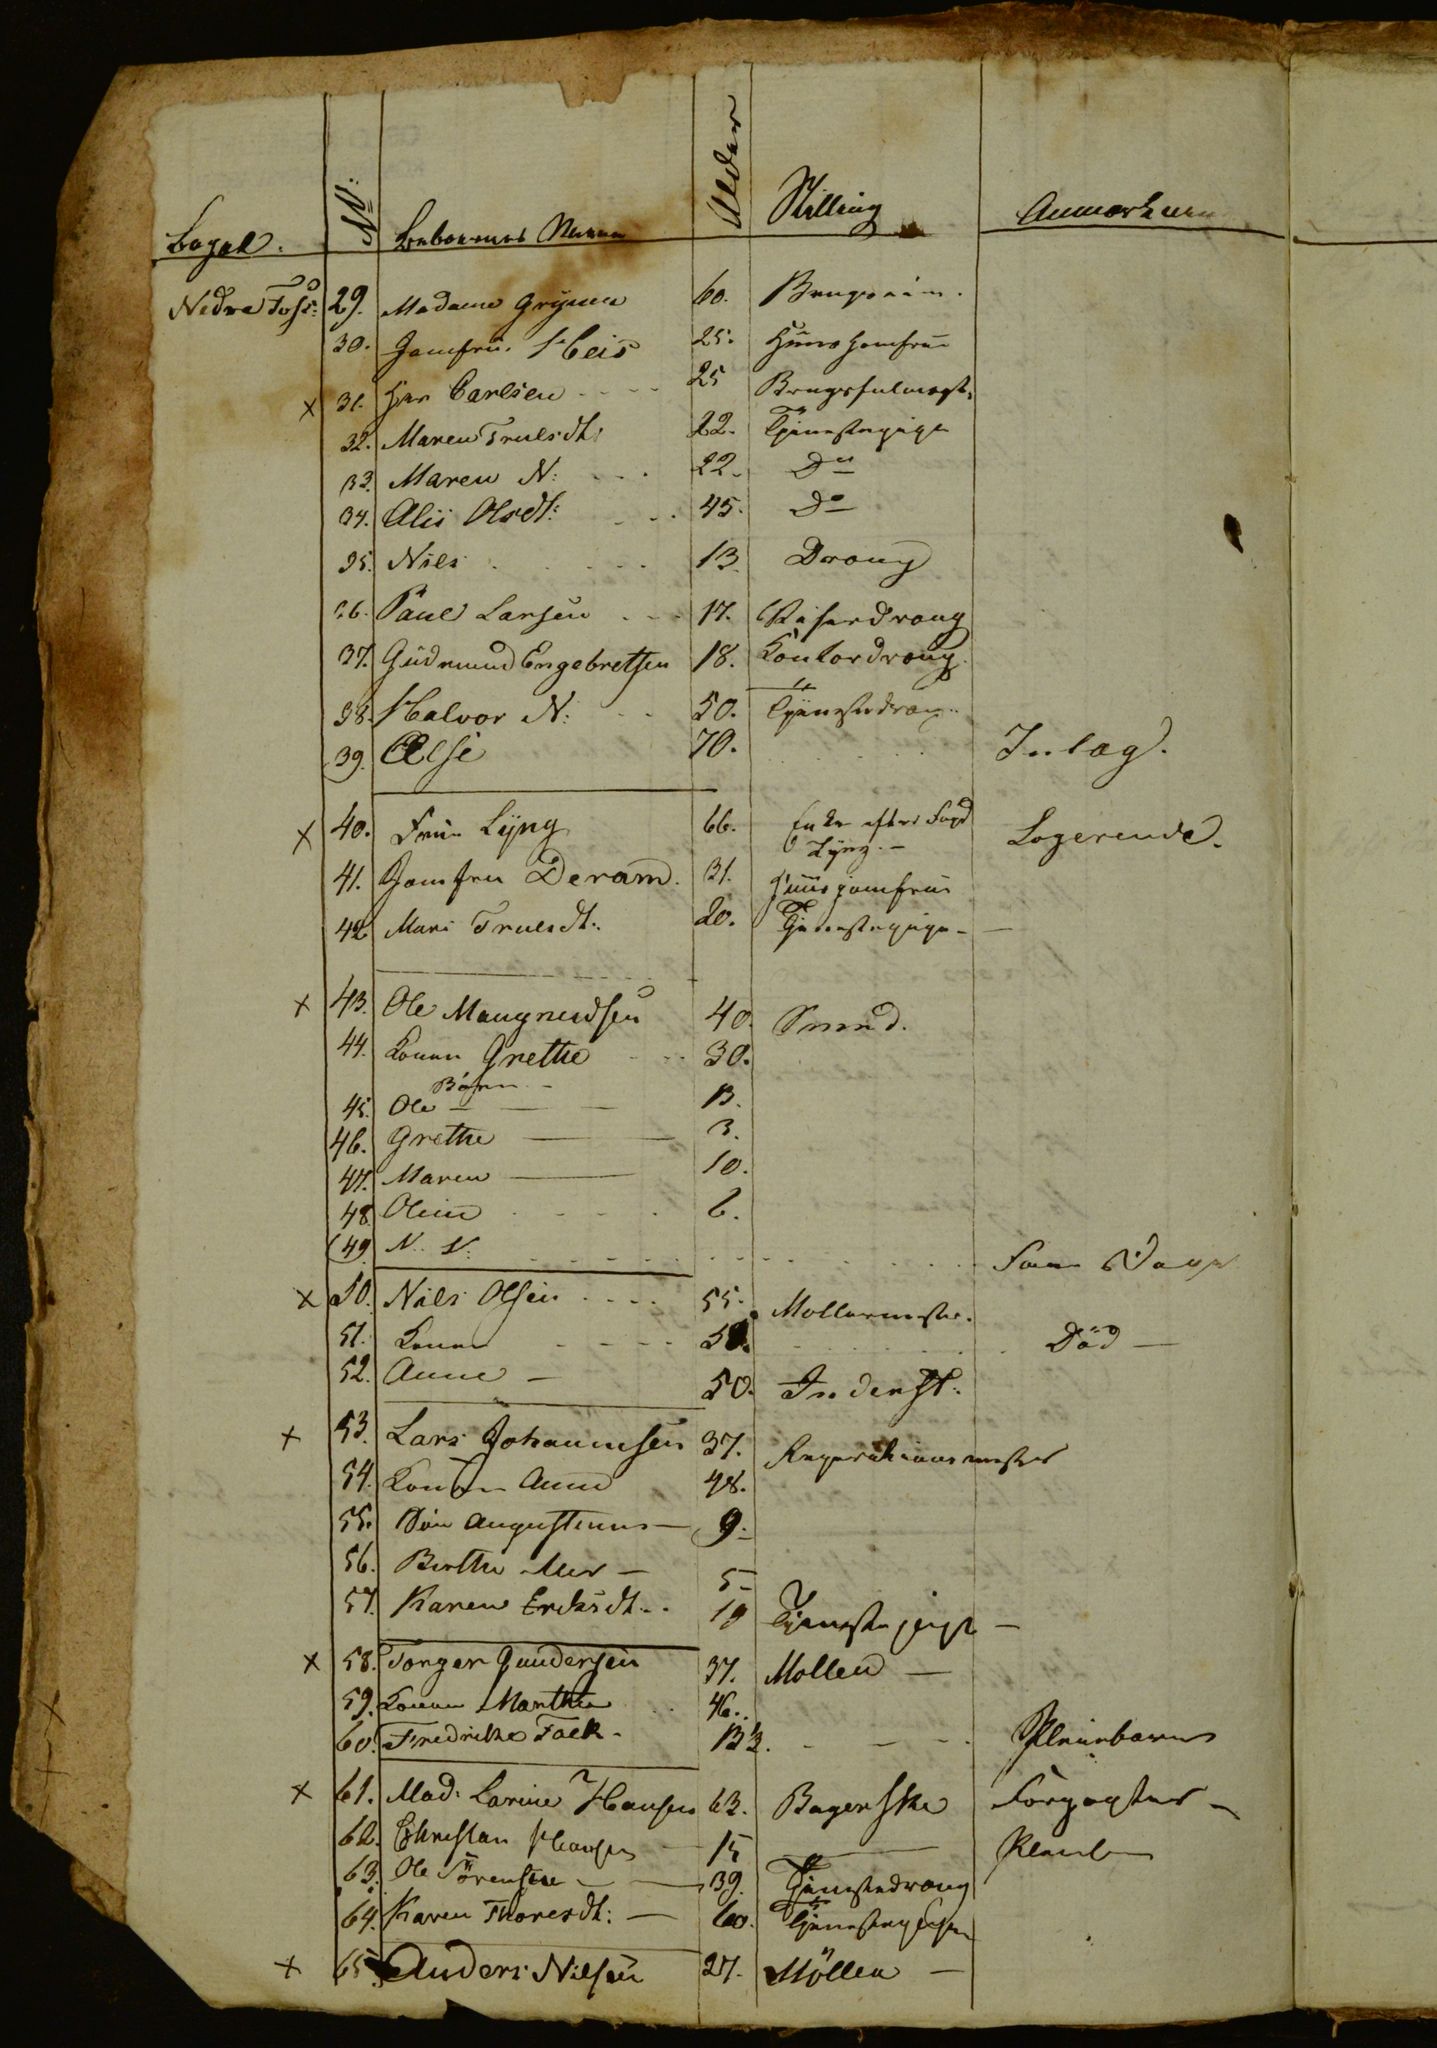 No: Alder Stilling
Beboernes Navne
Nedre Foss: 29. Madame Grüner 60.
30. Jomfru Heis 25. Huus Jomfrue
x 31. Hr Carlsen 25 Brugsfulmægt:
32. Maren Truelsdt: 22. Tjenestepige
33. Maren N: 22. Do
34. Alis Olsdt: 45. Do
35. Niels 13. Dreng
36. Paul Larsen 17. dreng
37. Gudmund Engebretsen 18. Contordreng
38. Halvor N: 50. Tjenestedreng
39. Else 70. Inlæg.
x 40. Frue Lyng 66. Enke efter Fogd Logerende.
Lyng. –
41. Jomfru Deram. 31. Huus jomfrue
42 Mari Truelsdt. 20. Tjenestepige –
x 43. Ole Mangnusdsen 40. Smed.
44. Konen Grethe 30.
Børn –
45. Ole – 13.
46. Grethe – 3.
47. Maren – 10.
48 Oline 6.
49 N. N:
x 50. Niels Olsen 55. Møllermester.
51. Konen 50. Død –
52. Anne – 50. Inderst.
x 53. Lars Johannesen 37. Reperationsmester
54. Konen Anne 48.
55. Søn Augustinus – 9. –
56. Berthe – 5 –
57. Karen Ericksdt. 19 Tjenestepige –
x 58. Torger Gundersen 37. Møller –
59. Konen Marthe 46.
60. Fredrikke Falck – 13. Pleiebarn
x 61. Mad: Larine Hansen 63. Bagerske Forpagter –
62. Christian Hansen – 15 –
63. Ole Sörensen – 39. Tjenestedreng
64. Karen Thoresdt: – 60. Tjenestepige
x 65. Anders Nilsen 27. Möller –